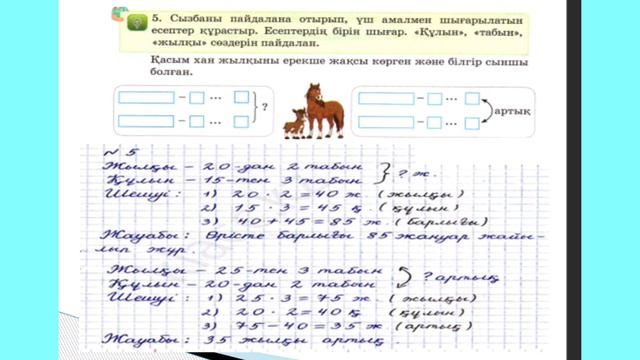 5. Сызбаны пайдалана отырып, үш амалмен шығарылатын
есептер құрастыр. Есептердің бірін шығар. «Құлын», «табын»,
«жылқы» сөздерін пайдалан.
Қасым хан жылқыны ерекше жақсы көрген және білгір сыншы
болған.
– ... ?
– ...
– ... артық
– ...
№ 5
Жылқы – 20-дан 2 табын } ? ж.
Құлын – 15-тен 3 табын
Шешуі: 1) 20 · 2 = 40 ж. (жылқы)
2) 15 · 3 = 45 қ. (құлын)
3) 40 + 45 = 85 ж. (барлығы)
Жауабы: Өрісте барлығы 85 жануар жайы-
лып жүр.
Жылқы – 25-тен 3 табын ? артық
Құлын – 20-дан 2 табын
Шешуі: 1) 25 · 3 = 75 ж. (жылқы)
2) 20 · 2 = 40 қ (құлын)
3) 75 – 40 = 35 ж. (артық)
Жауабы: 35 жылқы артық.